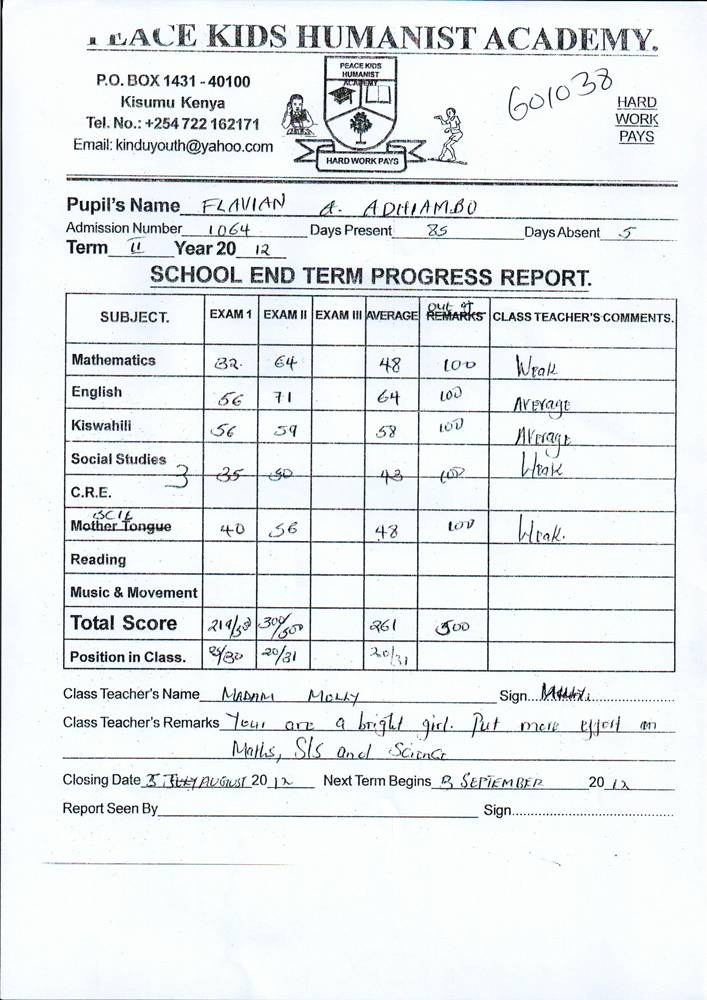 PEACE KIDS HUMANIST ACADEMY.
P.O. BOX 1431 - 40100
Kisumu Kenya
Tel. No.: +254 722 162171
Email: kinduyouth@yahoo.com
PEACE KIDS
HUMANIST
ACADEMY
HARD WORK PAYS
601038
HARD
WORK
PAYS
Pupil's Name FLAVIAN A. ADHIAMBO
Admission Number 1064 Days Present 85 Days Absent 5
Term II Year 20 12
SCHOOL END TERM PROGRESS REPORT.
SUBJECT. EXAM 1 EXAM II EXAM III AVERAGE out of REMARKS CLASS TEACHER'S COMMENTS.
Mathematics 32 64 48 100 Weak
English 56 71 64 100 Average
Kiswahili 56 59 58 100 Average
Social Studies 3 35 50 43 100 Weak
C.R.E.
SCIE
Mother Tongue 40 56 48 100 Weak.
Reading
Music & Movement
Total Score 219/500 300/500 261 500
Position in Class. /30 20/31 20/31
Class Teacher's Name MADAM MOLLY Sign.
Class Teacher's Remarks Your are a bright girl. Put more effort on
Maths, S/s and Science
Closing Date AUGUST 20 12 Next Term Begins 3 SEPTEMBER 20 12
Report Seen By Sign